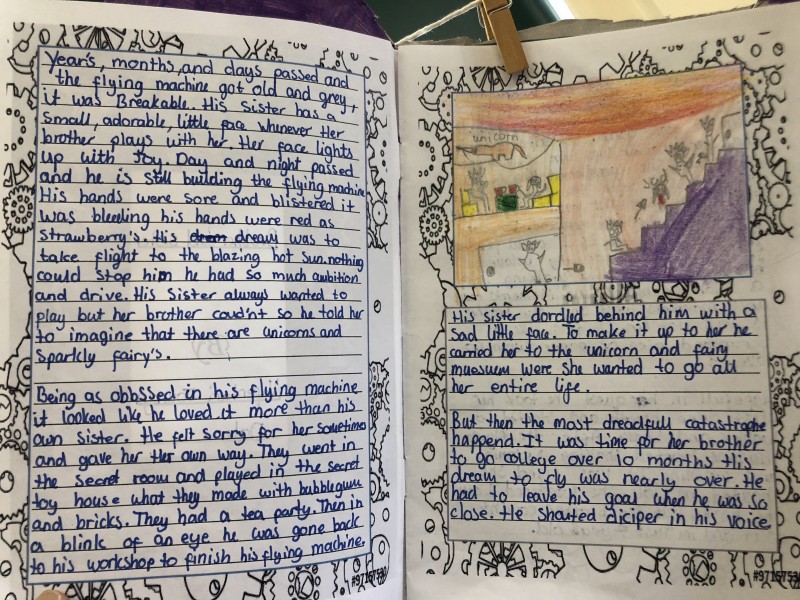 Years, months, and days passed and
the flying machine got old and grey,
it was Breakable. His Sister has a
small, adorable, little face whenever Her
brother plays with her. Her face lights
up with Joy. Day and night passed
and he is still building the flying machine
His hands were sore and blistered it
was bleeding his hands were red as
strawberry's. His dream was to
take flight to the blazing hot sun.nothing
could stop him he had so much ambition
and drive. His Sister always wanted to
play but her brother coud'nt so he told her
to imagine that there are unicorns and
sparkly fairy's.
Being as obbssed in his flying machine
it looked like he loved it more than his
own sister. He felt sorry for her sometime
and gave her Her own way. They went in
the secret room and played in the secret
toy house what they made with bubblegum
and bricks. They had a tea party. Then in
a blink of an eye he was gone back
to his workshop to finish his flying machine.
#9715753
unicorn
His sister dordled behind him with a
sad little face. To make it up to her he
carried her to the unicorn and fairy
muesuum were she wanted to go all
her entire life.
But then the most dreadfull catastrophe
happend. It was time for her brother
to go college over 10 months His
dream to fly was nearly over. He
had to leave his goal when he was so
close. He shouted diciper in his voice
#9715753